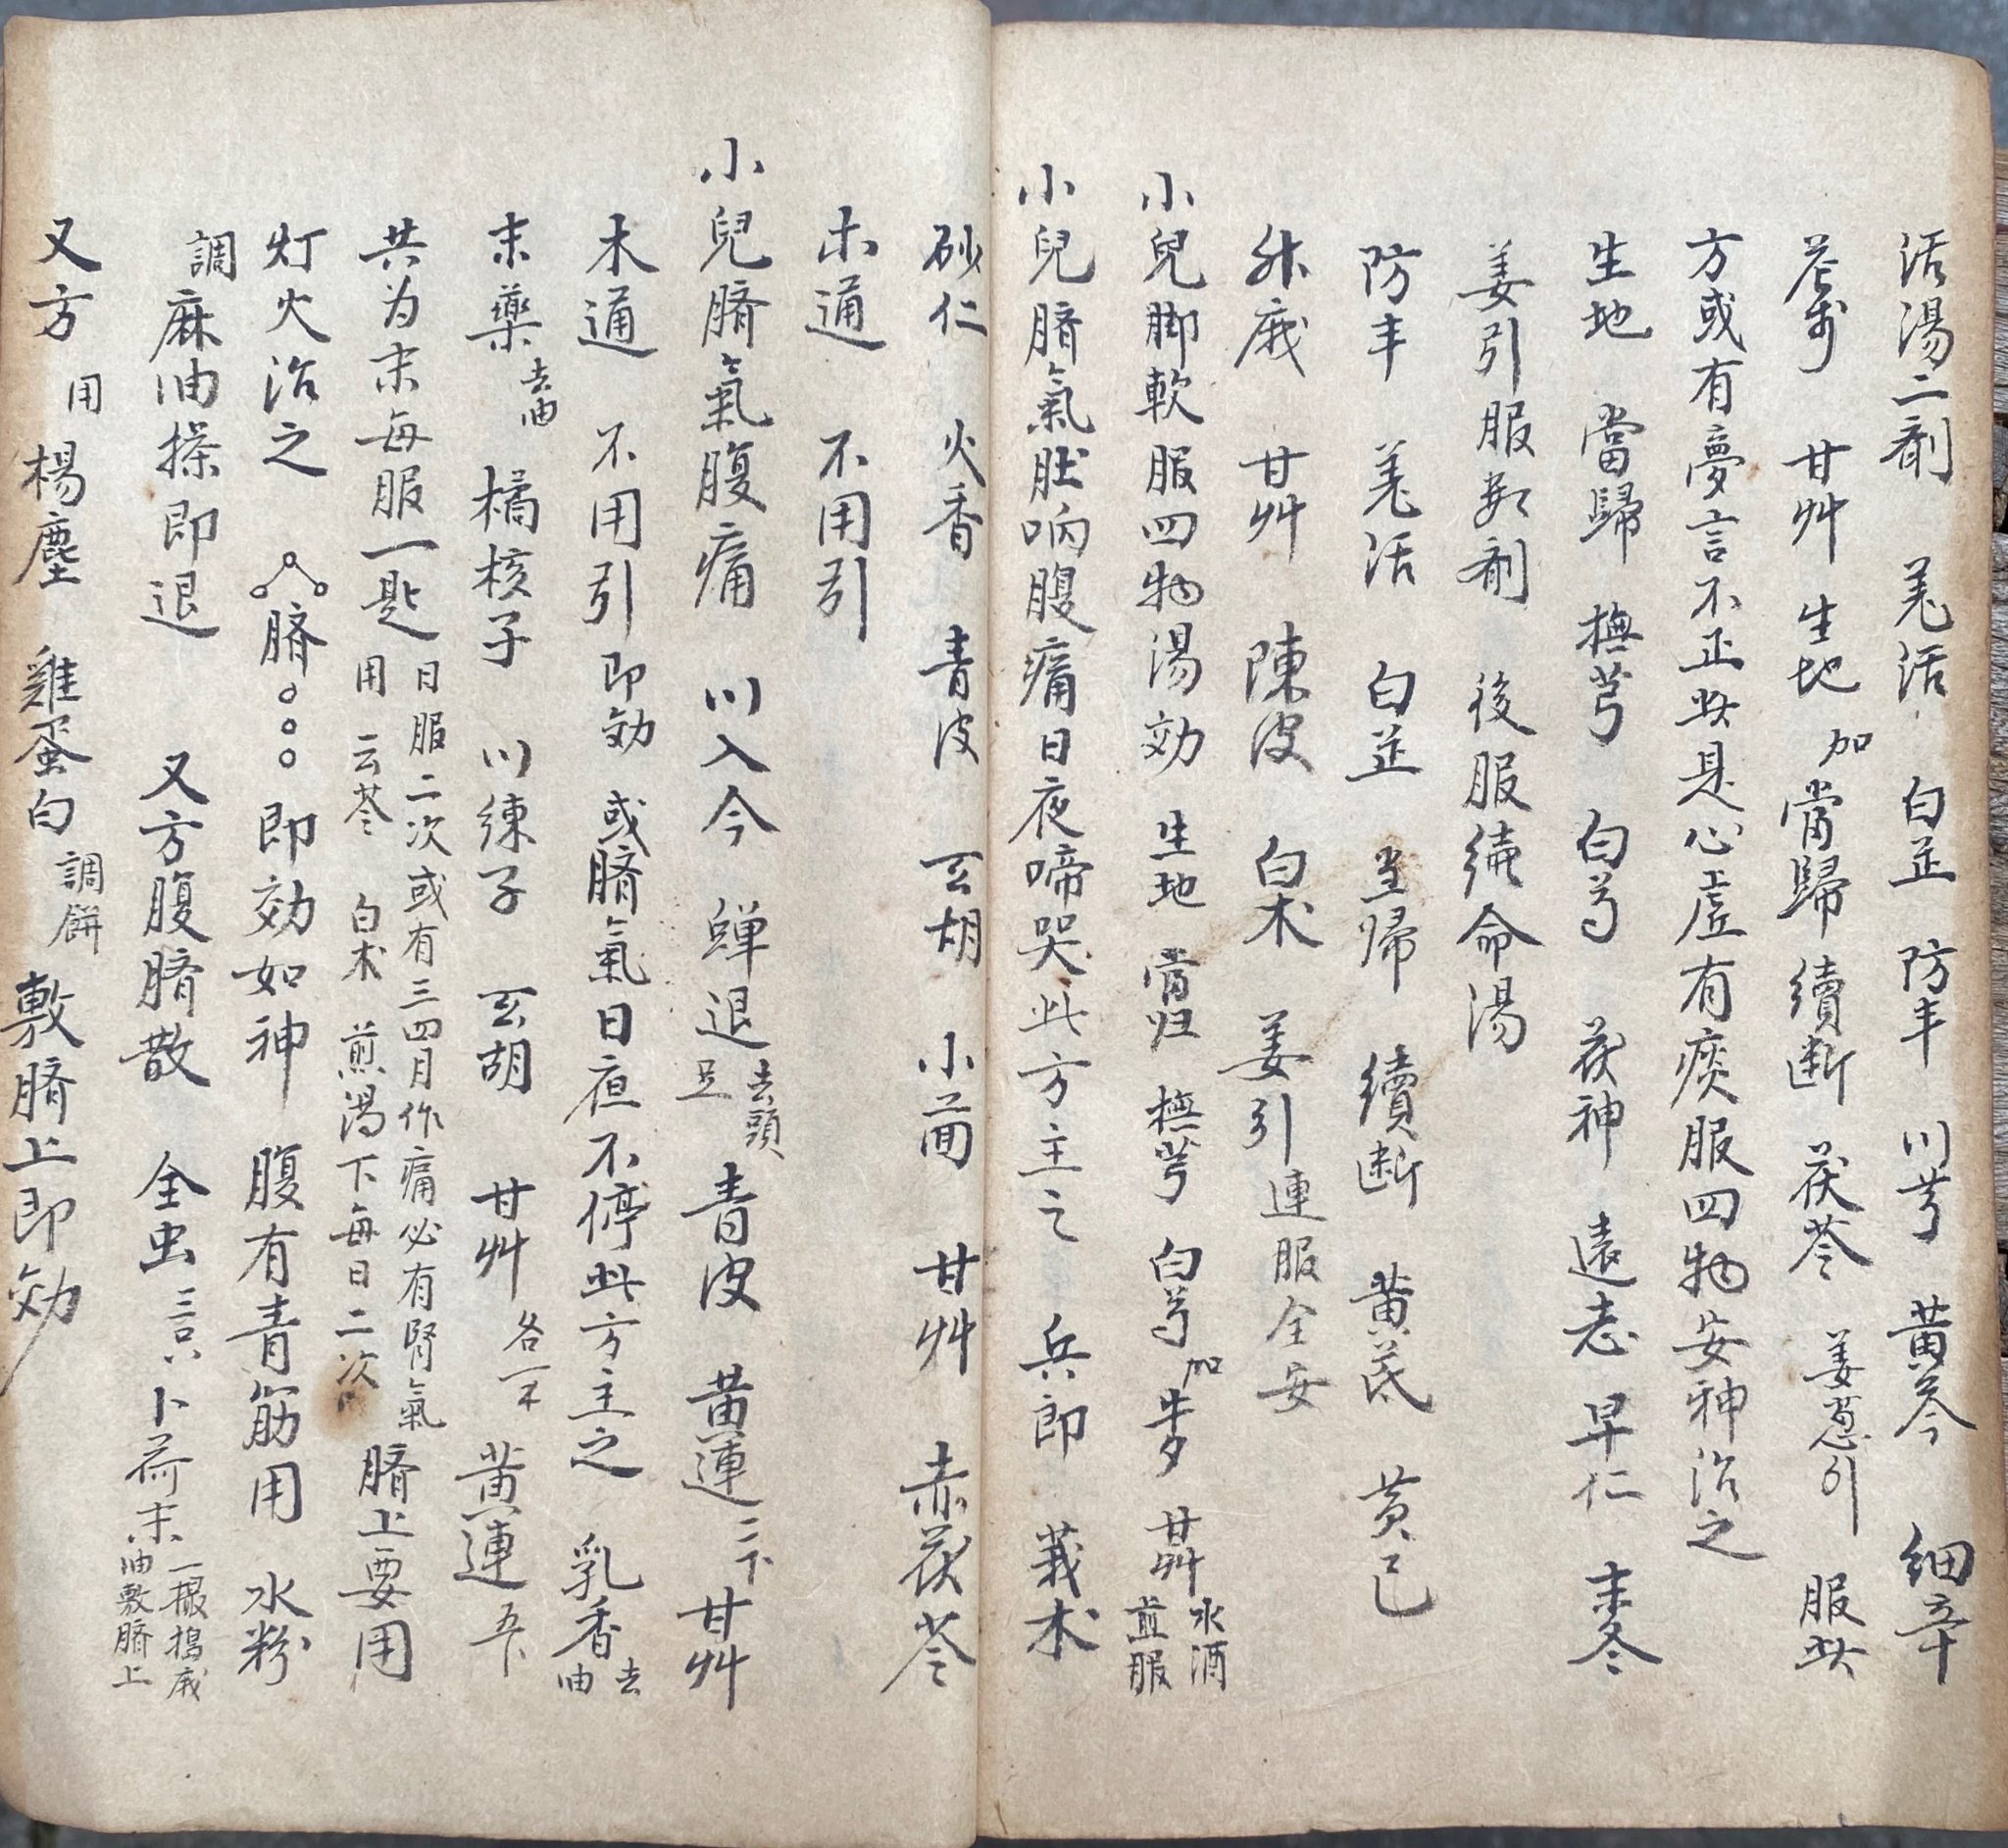 活湯二剤 羌活 白芷 防丰 川芎 黄芩 細辛
甘艸 生地 加 當歸 續断 茯苓 姜葱引 服此
方或有夢言不正此是心虚有痰服四物安神治之
生地 當歸 撫芎 白芍 茯神 遠志 早仁 麦冬
姜引服数剤 後服續命湯
防丰 羌活 白芷 当帰 續断 黄芪 黄己
甘艸 陳皮 白术 姜引連服全安
小兒脚軟服四物湯効 生地 當归 撫芎 白芍 加 甘艸 水酒
煎服
小兒臍氣肚响腹痛日夜啼哭此方主之 兵郎 莪术
砂仁 火香 青皮 玄胡 小茴 甘艸 赤茯苓
木通 不用引
小兒臍氣腹痛 川入今 蟬退 去頭
足 青皮 黄連 二下 甘艸
木通 不用引即効 或臍氣日夜不停此方主之 乳香 去
油
末藥 去油 橘核子 川練子 玄胡 甘艸 各一不 黄連 五下
共为末每服一匙 日服二次或有三四月作痛必有腎氣
用云苓 白术 煎湯下每日二次 臍上要用
灯火治之 臍 即効如神 腹有青筋用 水粉
調麻油搽即退 又方腹臍散 全虫 三只 卜荷末 一撮搗成
油敷臍上
又方 用 楊塵 雞蛋白 調餅 敷臍上即効